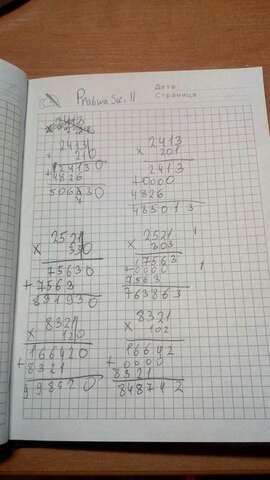 Дата
Страница
Proburo Sur. 11
2413
x 210
2413
x 201
+ 2413 0
4826
506730
2413
+ 0000
4826
485013
2521
x 330
2521
x 303
75630
+ 7563
831930
7563
+ 0000
7563
763863
8321
x 120
8321
x 102
166420
+ 8321
998520
16642
+ 0000
8321
848742